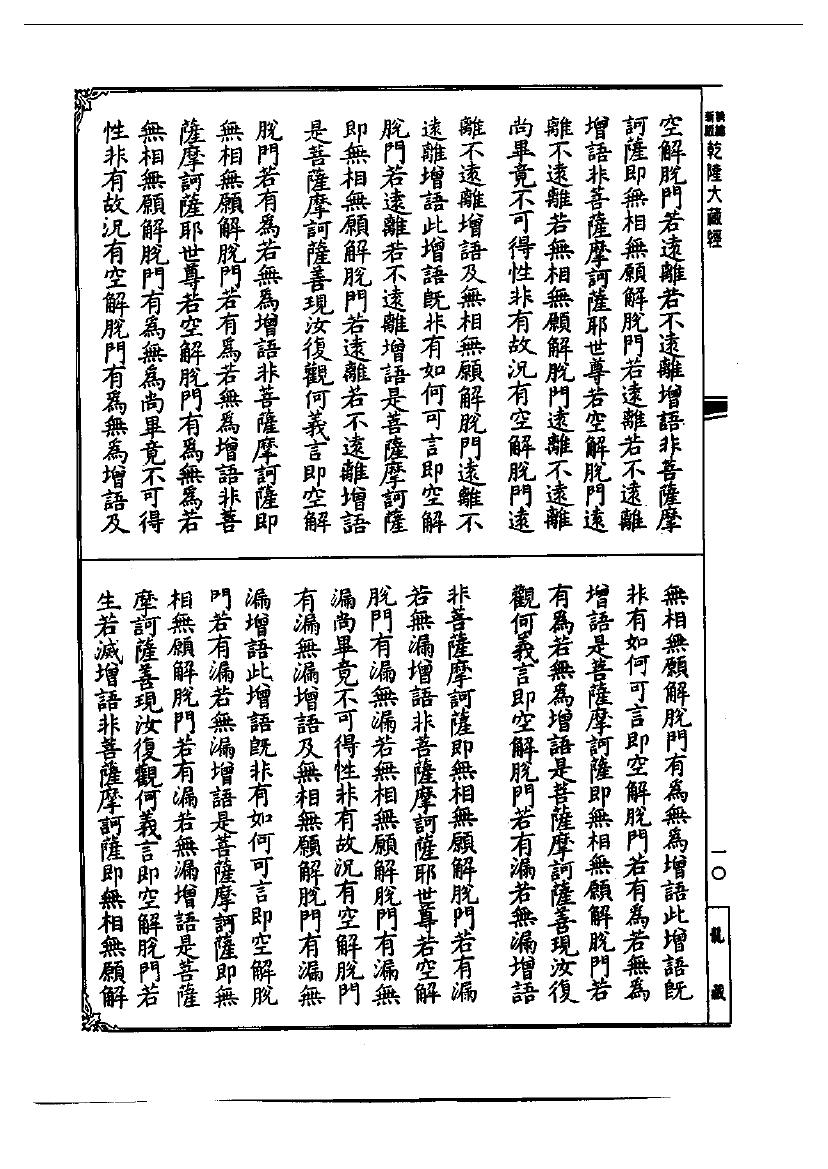 空解脫門若遠離若不遠離增語非菩薩摩
訶薩即無相無願解脫門若遠離若不遠離
增語非菩薩摩訶薩耶世尊若空解脫門遠
離不遠離若無相無願解脫門遠離不遠離
尚畢竟不可得性非有故況有空解脫門遠
離不遠離增語及無相無願解脫門遠離不
遠離增語此增語旣非有如何可言即空解
脫門若遠離若不遠離增語是菩薩摩訶薩
即無相無願解脫門若遠離若不遠離增語
是菩薩摩訶薩善現汝復觀何義言即空解
脫門若有為若無為增語非菩薩摩訶薩即
無相無願解脫門若有為若無為增語非菩
薩摩訶薩耶世尊若空解脫門有為無為若
無相無願解脫門有為無為尚畢竟不可得
性非有故況有空解脫門有為無為增語及
無相無願解脫門有為無為增語此增語旣
非有如何可言即空解脫門若有為若無為
增語是菩薩摩訶薩即無相無願解脫門若
有為若無為增語是菩薩摩訶薩善現汝復
觀何義言即空解脫門若有漏若無漏增語
非菩薩摩訶薩即無相無願解脫門若有漏
若無漏增語非菩薩摩訶薩耶世尊若空解
脫門有漏無漏若無相無願解脫門有漏無
漏尚畢竟不可得性非有故況有空解脫門
有漏無漏增語及無相無願解脫門有漏無
漏增語此增語旣非有如何可言即空解脫
門若有漏若無漏增語是菩薩摩訶薩即無
相無願解脫門若有漏若無漏增語是菩薩
摩訶薩善現汝復觀何義言即空解脫門若
生若滅增語非菩薩摩訶薩即無相無願解
乾隆大藏經
一〇
龍藏